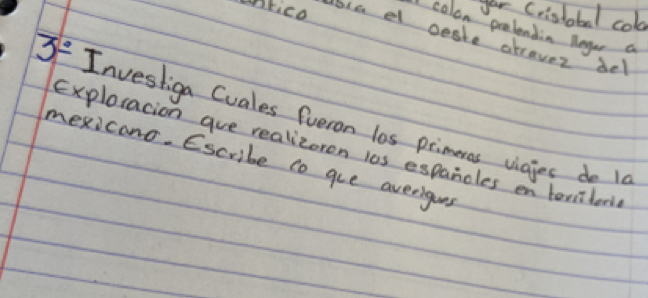 Cristobal colo
colon pretendia llegar a
ntico
el oeste atravez del
3º Investiga Cuales fueron los primeros viajes de la
Exploracion que realizaron los españoles en territorio
mexicano. Escribe lo que averigues